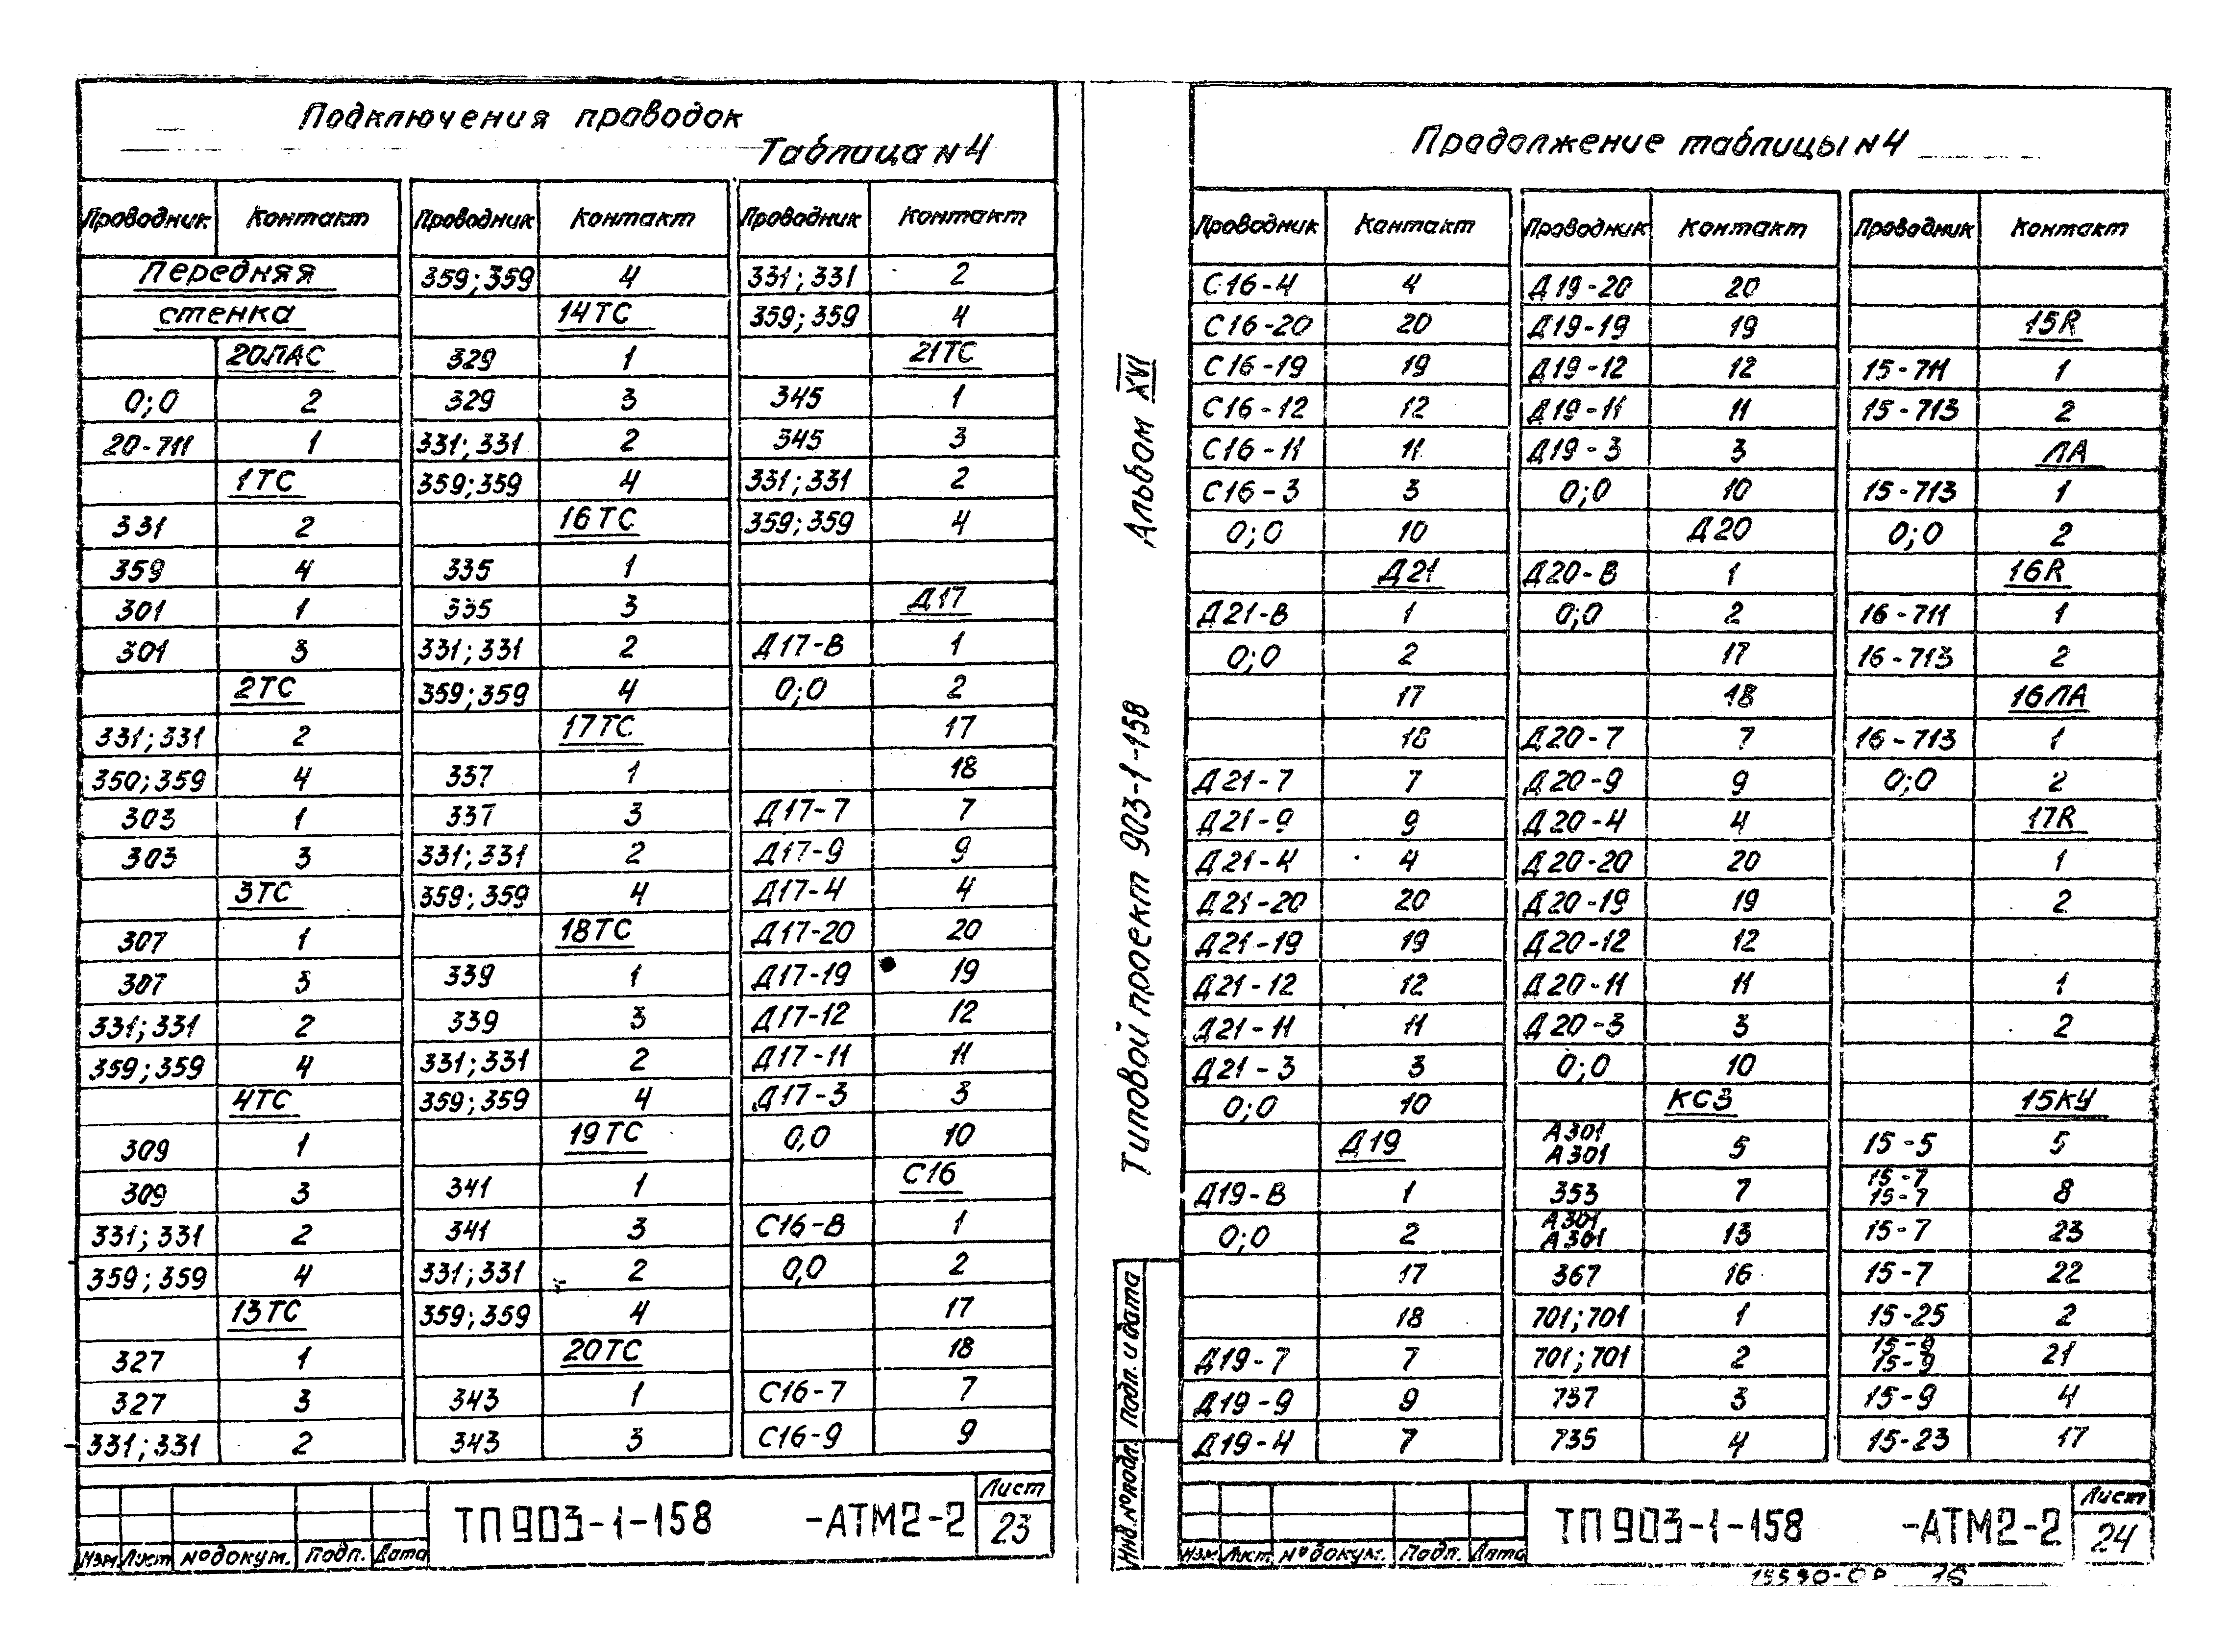 Подключения проводок
Таблица N4
Проводник Контакт Проводник Контакт Проводник Контакт
Передняя 359;359 4 331;331 2
стенка 14ТС 359;359 4
20ЛАС 329 1 21ТС
0;0 2 329 3 345 1
20-711 1 331;331 2 345 3
1ТС 359;359 4 331;331 2
331 2 16ТС 359;359 4
359 4 335 1
301 1 335 3 Д17
301 3 331;331 2 Д17-В 1
2ТС 359;359 4 0;0 2
331;331 2 17ТС 17
350;359 4 337 1 18
303 1 337 3 Д17-7 7
303 3 331;331 2 Д17-9 9
3ТС 359;359 4 Д17-4 4
307 1 18ТС Д17-20 20
307 3 339 1 Д17-19 19
331;331 2 339 3 Д17-12 12
359;359 4 331;331 2 Д17-11 11
4ТС 359;359 4 Д17-3 3
309 1 19ТС 0,0 10
309 3 341 1 С16
331;331 2 341 3 С16-В 1
359;359 4 331;331 2 0,0 2
13ТС 359;359 4 17
327 1 20ТС 18
327 3 343 1 С16-7 7
331;331 2 343 3 С16-9 9
Изм. Лист № докум. Подп. Дата
ТП 903-1-158 -АТМ2-2
Лист
23
Альбом XVI
Типовой проект 903-1-158
Подп. и дата
Инв. № подл.
Продолжение таблицы N4
Проводник Контакт Проводник Контакт Проводник Контакт
С16-4 4 Д19-20 20
С16-20 20 Д19-19 19 15R
С16-19 19 Д19-12 12 15-711 1
С16-12 12 Д19-11 11 15-713 2
С16-11 11 Д19-3 3 ЛА
С16-3 3 0;0 10 15-713 1
0;0 10 Д20 0;0 2
Д21 Д20-В 1 16R
Д21-В 1 0;0 2 16-711 1
0;0 2 17 16-713 2
17 18 16ЛА
18 Д20-7 7 16-713 1
Д21-7 7 Д20-9 9 0;0 2
Д21-9 9 Д20-4 4 17R
Д21-4 4 Д20-20 20 1
Д21-20 20 Д20-19 19 2
Д21-19 19 Д20-12 12
Д21-12 12 Д20-11 11 1
Д21-11 11 Д20-3 3 2
Д21-3 3 0;0 10
0;0 10 КС3 15КУ
Д19 А301 А301 5 15-5 5
Д19-В 1 353 7 15-7 15-7 8
0;0 2 А301 А301 13 15-7 23
17 367 16 15-7 22
18 701;701 1 15-25 2
Д19-7 7 701;701 2 15-9 15-9 21
Д19-9 9 737 3 15-9 4
Д19-4 7 735 4 15-23 17
Изм. Лист № докум. Подп. Дата
ТП 903-1-158 -АТМ2-2
Лист
24